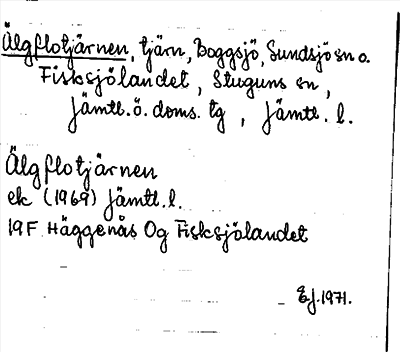 Älgflotjärnen, tjärn, Boggsjö, Sundsjö sn o.
Fisksjölandet, Stuguns sn,
Jämtl. ö. doms. tg, Jämtl. l.
Älgflotjärnen
ek (1969) Jämtl. l.
19F Häggenås Og Fisksjölandet
EJ. 1971.